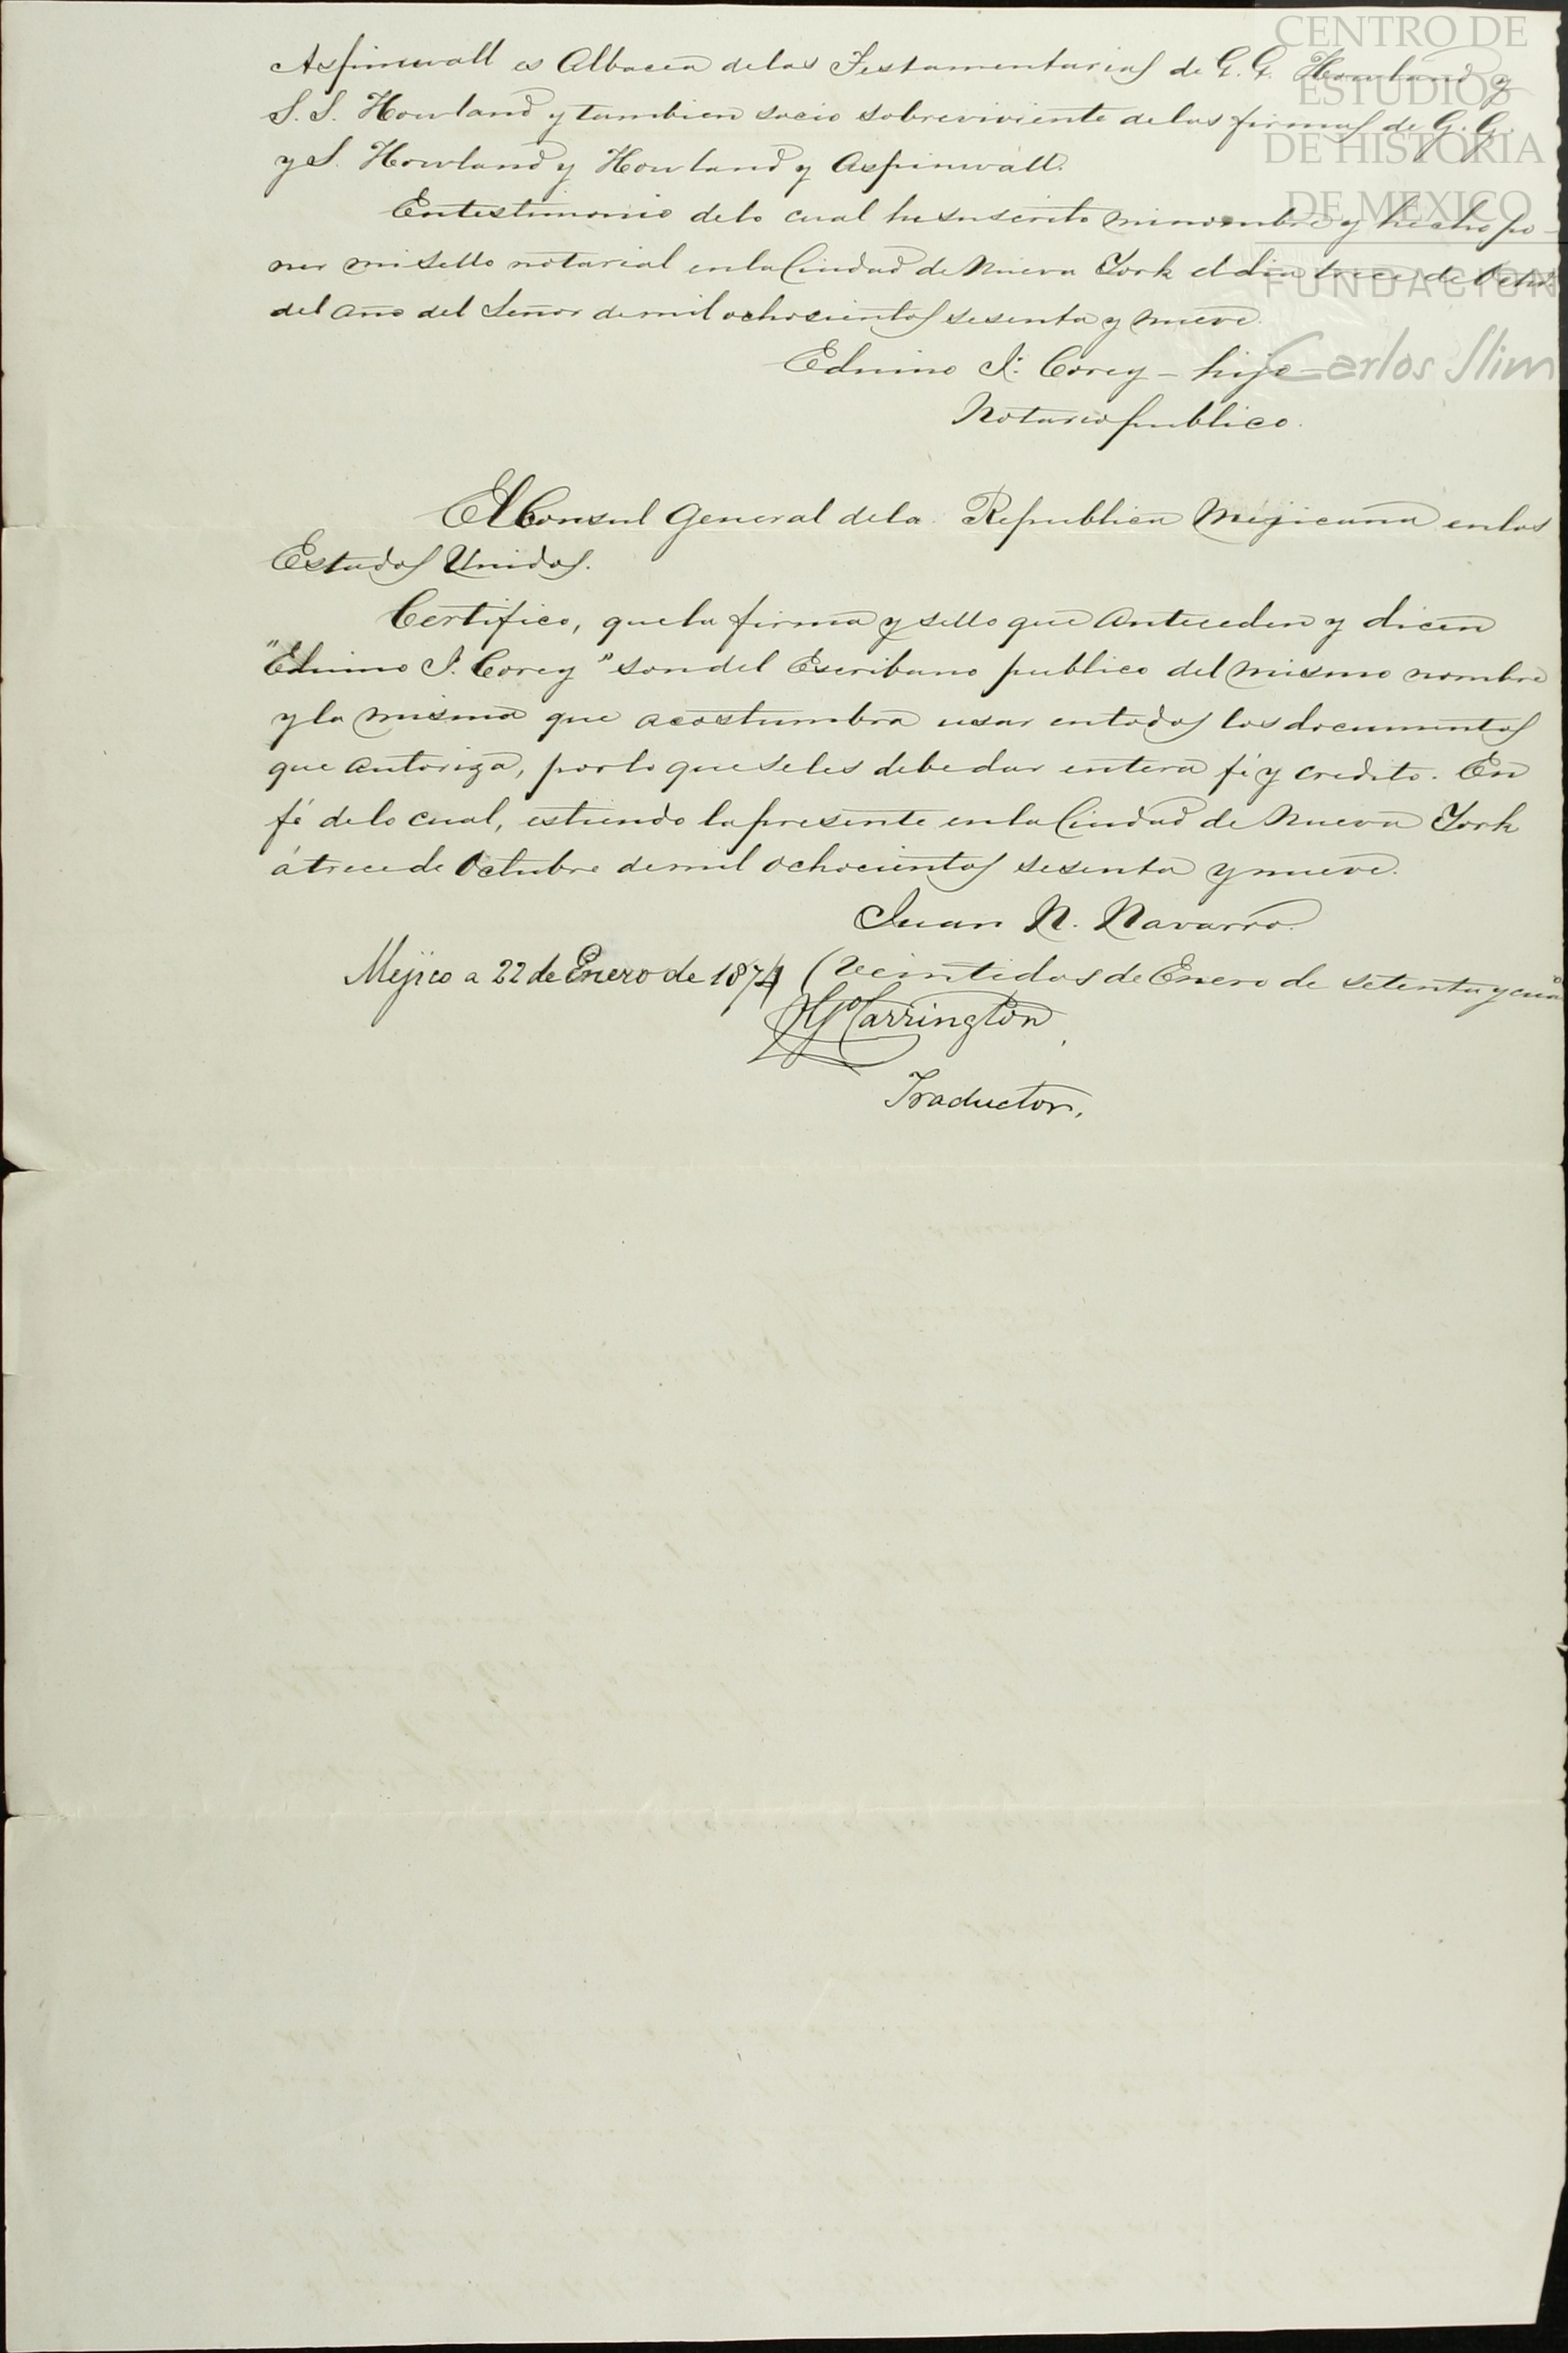 Aspinwall es Albacea de las Testamentarias de G. G. Howland y
S. S. Howland y tambien socio sobreviviente de las firmas de G. G.
y S. Howland y Howland y Aspinwall.
En testimonio de lo cual he suscrito mi nombre y hecho po-
ner mi sello notarial en la Ciudad de Nueva York el dia trece de Octe.
del año del Señor de mil ochocientos sesenta y nueve.
Edwino I. Corey - hijo -
Notario publico.
El Consul General de la Republica Mejicana en los
Estados Unidos.
Certifico, que la firma y sello que anteceden y dicen
"Edwino I. Corey" son del Escribano publico del mismo nombre
y la misma que acostumbra usar en todos los documentos
que autoriza, por lo que se les debe dar entera fé y credito. En
fé de lo cual, estiendo la presente en la Ciudad de Nueva York
á trece de Octubre de mil ochocientos sesenta y nueve.
Juan N. Navarro.
Mejico a 22 de Enero de 1874 (veintidos de Enero de setenta y cuao
Carrington
Traductor.
CENTRO DE
ESTUDIOS
DE HISTORIA
DE MEXICO
FUNDACION
Carlos Slim